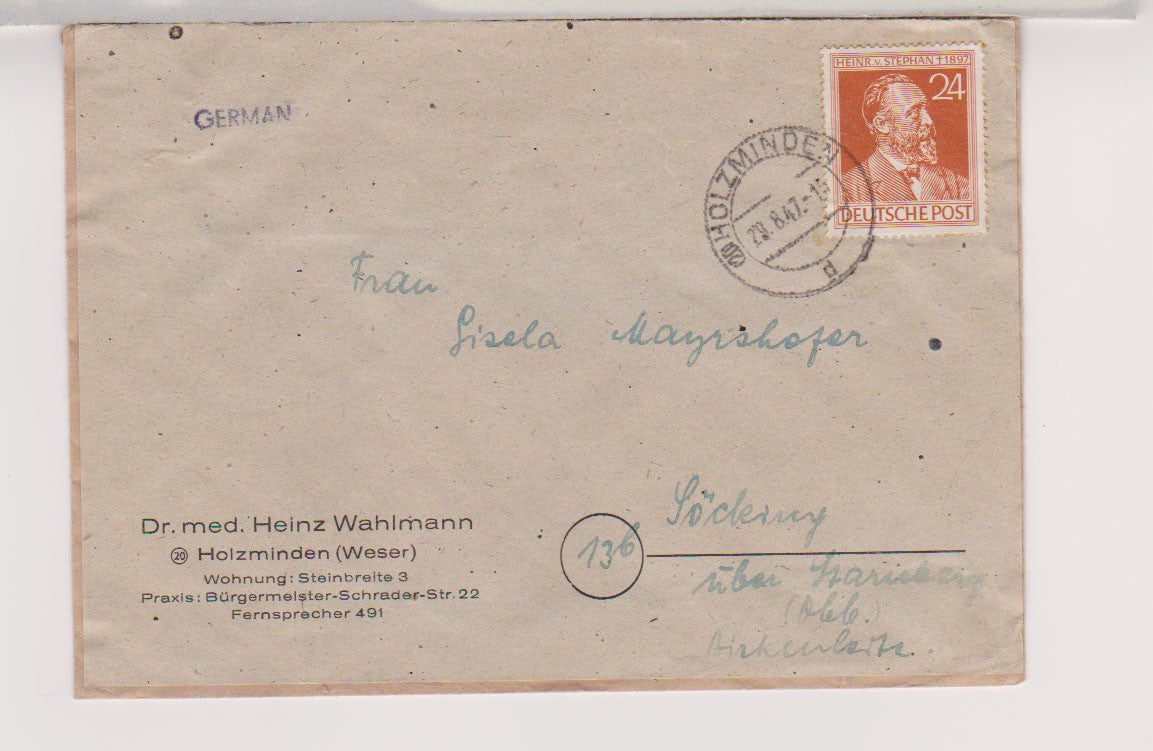 HEINR. v. STEPHAN † 1897
24
DEUTSCHE POST
GERMAN
(20) HOLZMINDEN
29.8.47.-1
p
Frau
Gisela Mayrshofer
13b
Söcking
über Starnberg
(Obb.)
Birkenleite.
Dr. med. Heinz Wahlmann
20 Holzminden (Weser)
Wohnung: Steinbreite 3
Praxis: Bürgermeister-Schrader-Str. 22
Fernsprecher 491